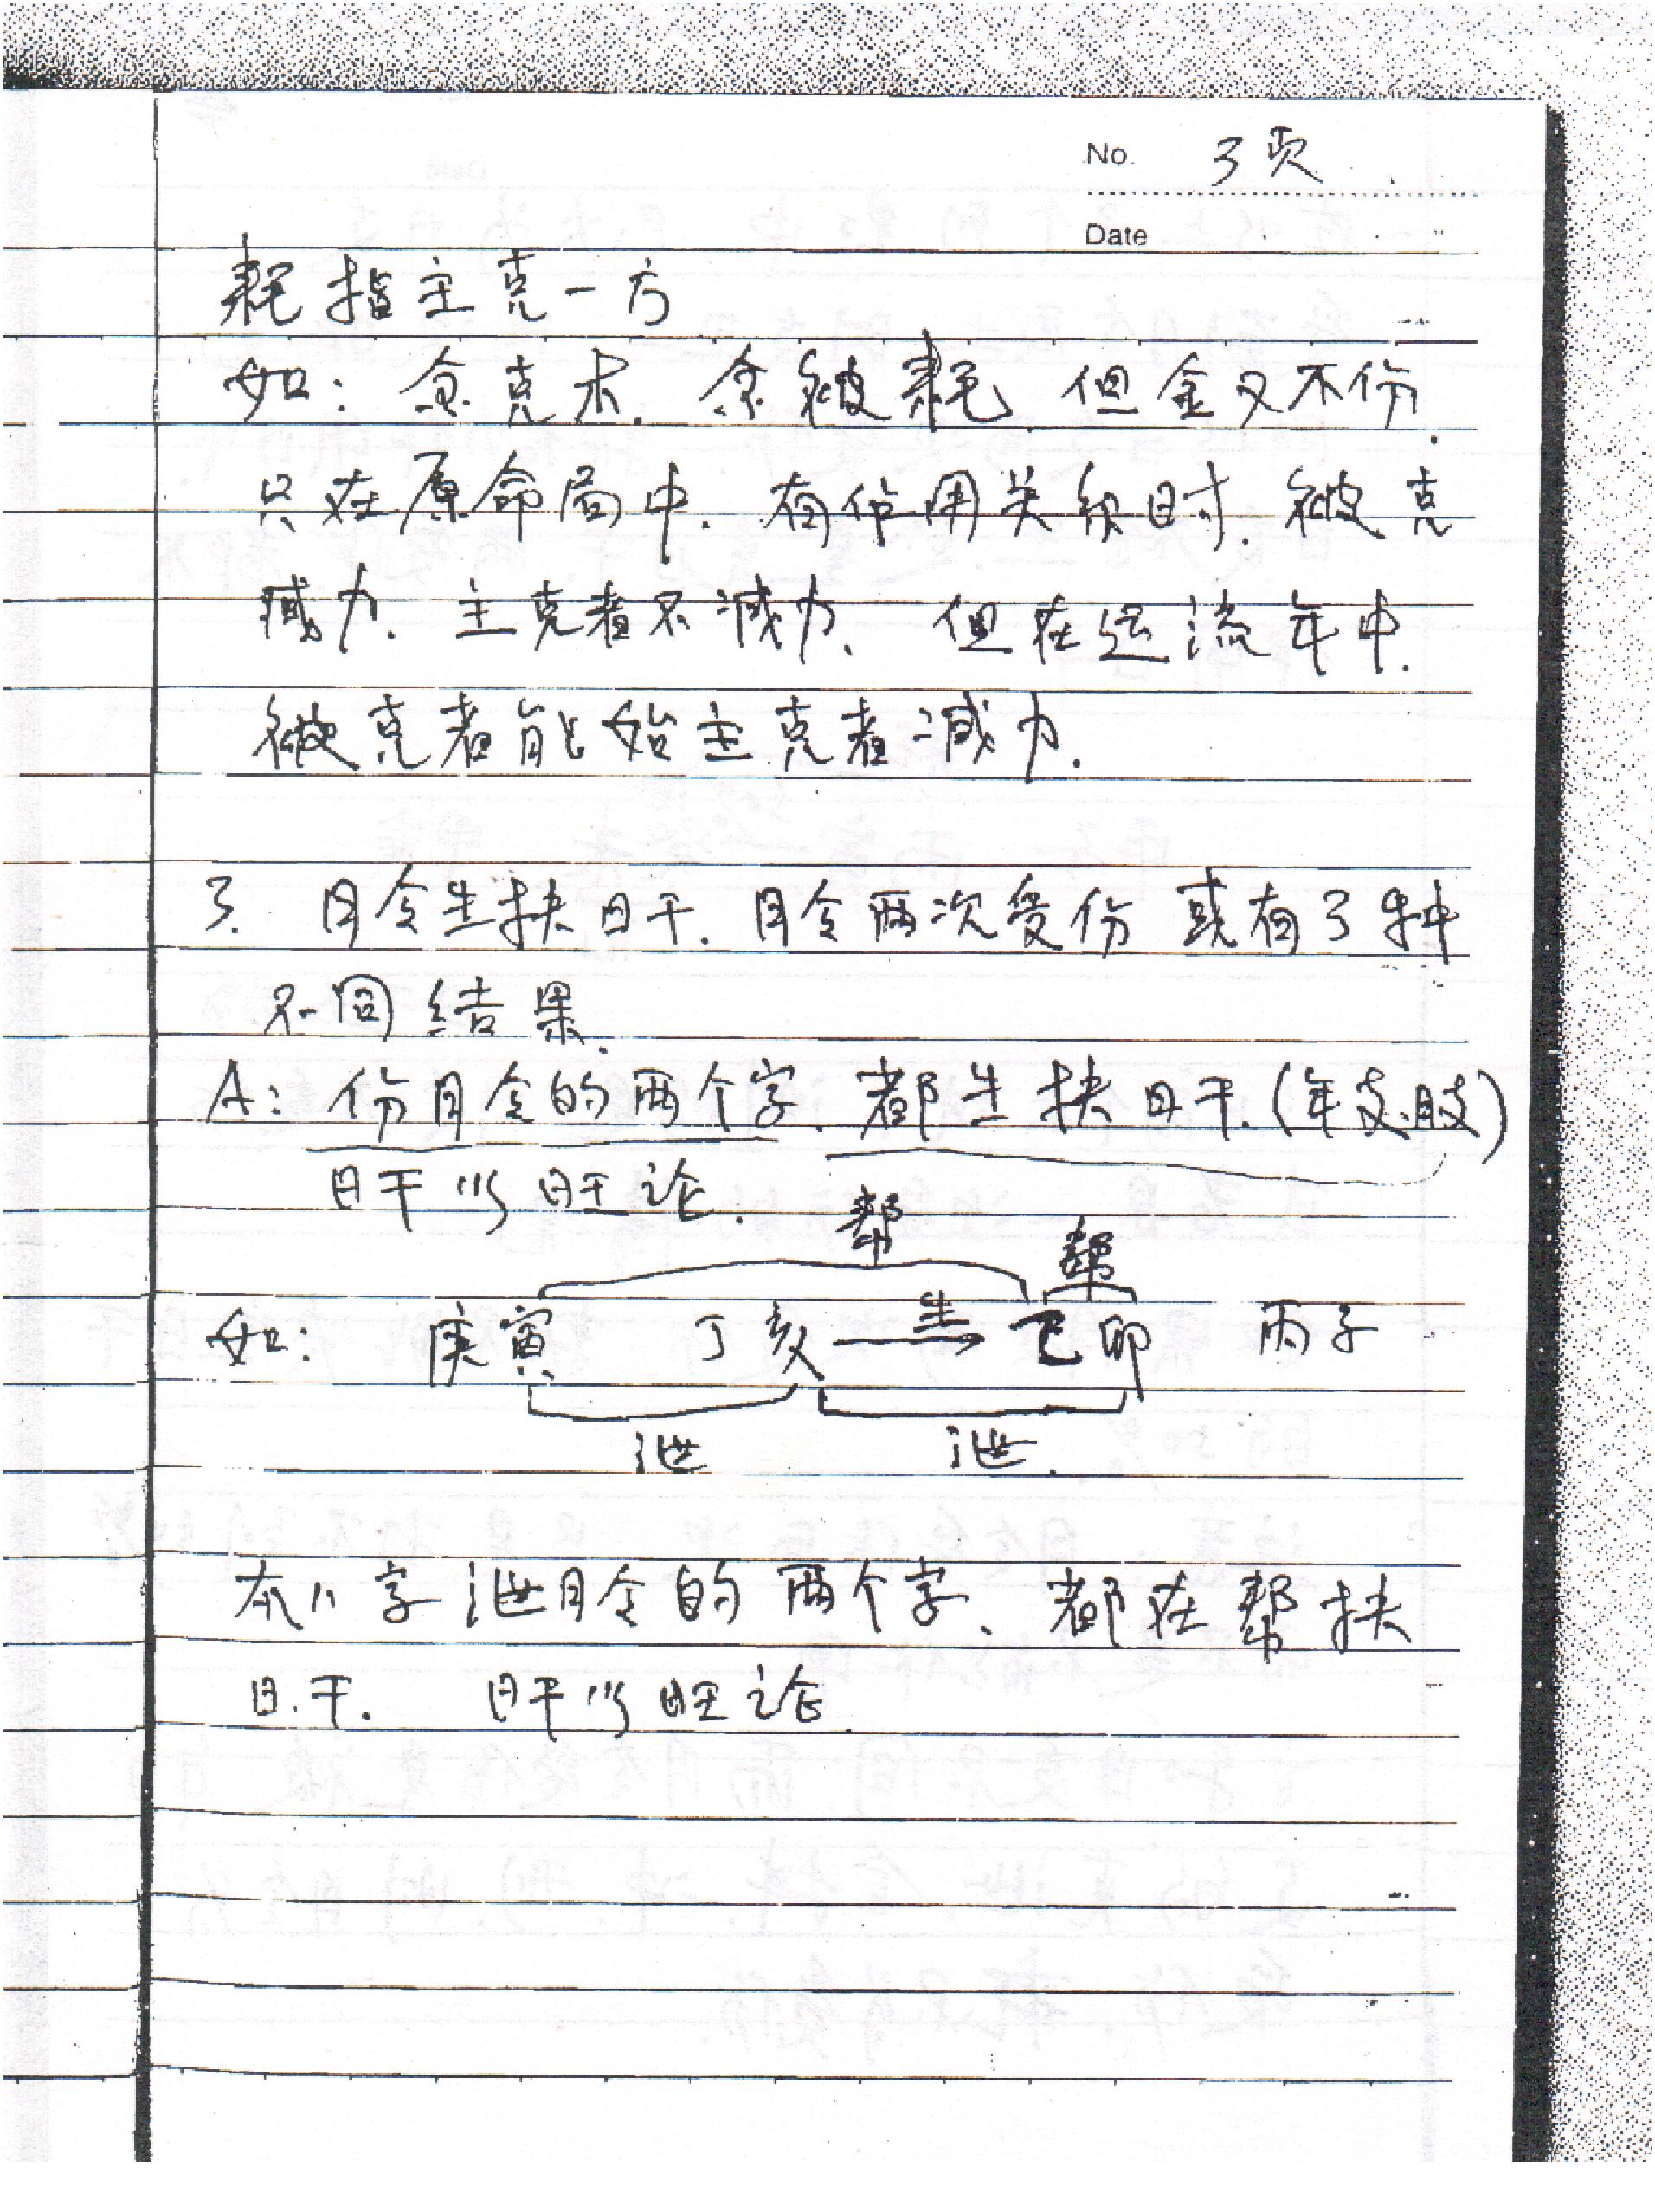 No. 3页
Date
耗指主克一方
如：金克木．金被耗．但金又不伤．
只在原命局中．有作用关系时．被克
减力．主克者不减力、但在运流年中．
被克者能始主克者减力．
3. 月令生扶日干．月令两次受伤 或有3种
不同结果．
A：伤月令的两个字．都生扶日干．(年支、日支)
日干以旺论．
帮 帮
如： 庚寅 丁亥 生 乙卯 丙子
泄 泄．
本八字泄月令的两个字、都在帮扶
日．干． 日干以旺论．